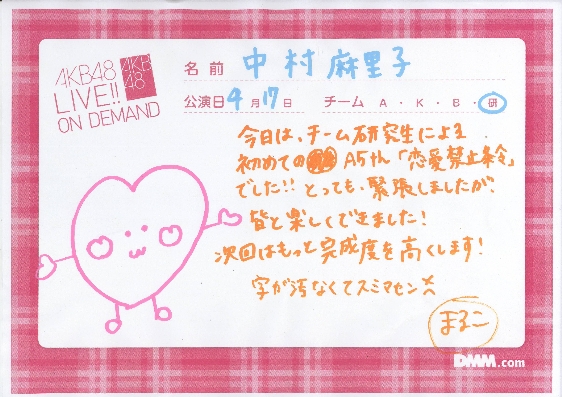 AKB48
LIVE!!
ON DEMAND
AKB
48
名前 中村麻里子
公演日 4月17日 チーム A・K・B・研
今日は、チーム研究生による
初めての A5th「恋愛禁止条令」
でした!! とっても、緊張しましたが?
皆と楽しくできました!
次回はもっと完成度を高くします!
字が汚なくてスミマセン
まりこ
DMM.com